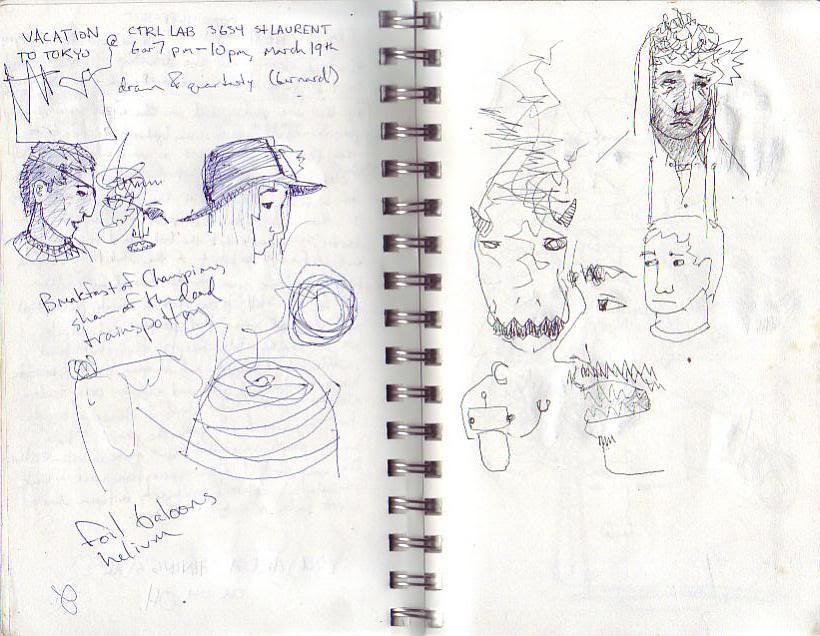 VACATION @ CTRL LAB 3654 ST LAURENT
TO TOKYO 6 or 7 pm - 10 pm, March 19th
drawn & quarterly (bernard)
Breakfast of Champions
shaun of the dead
trainspotting
foil baloons
helium